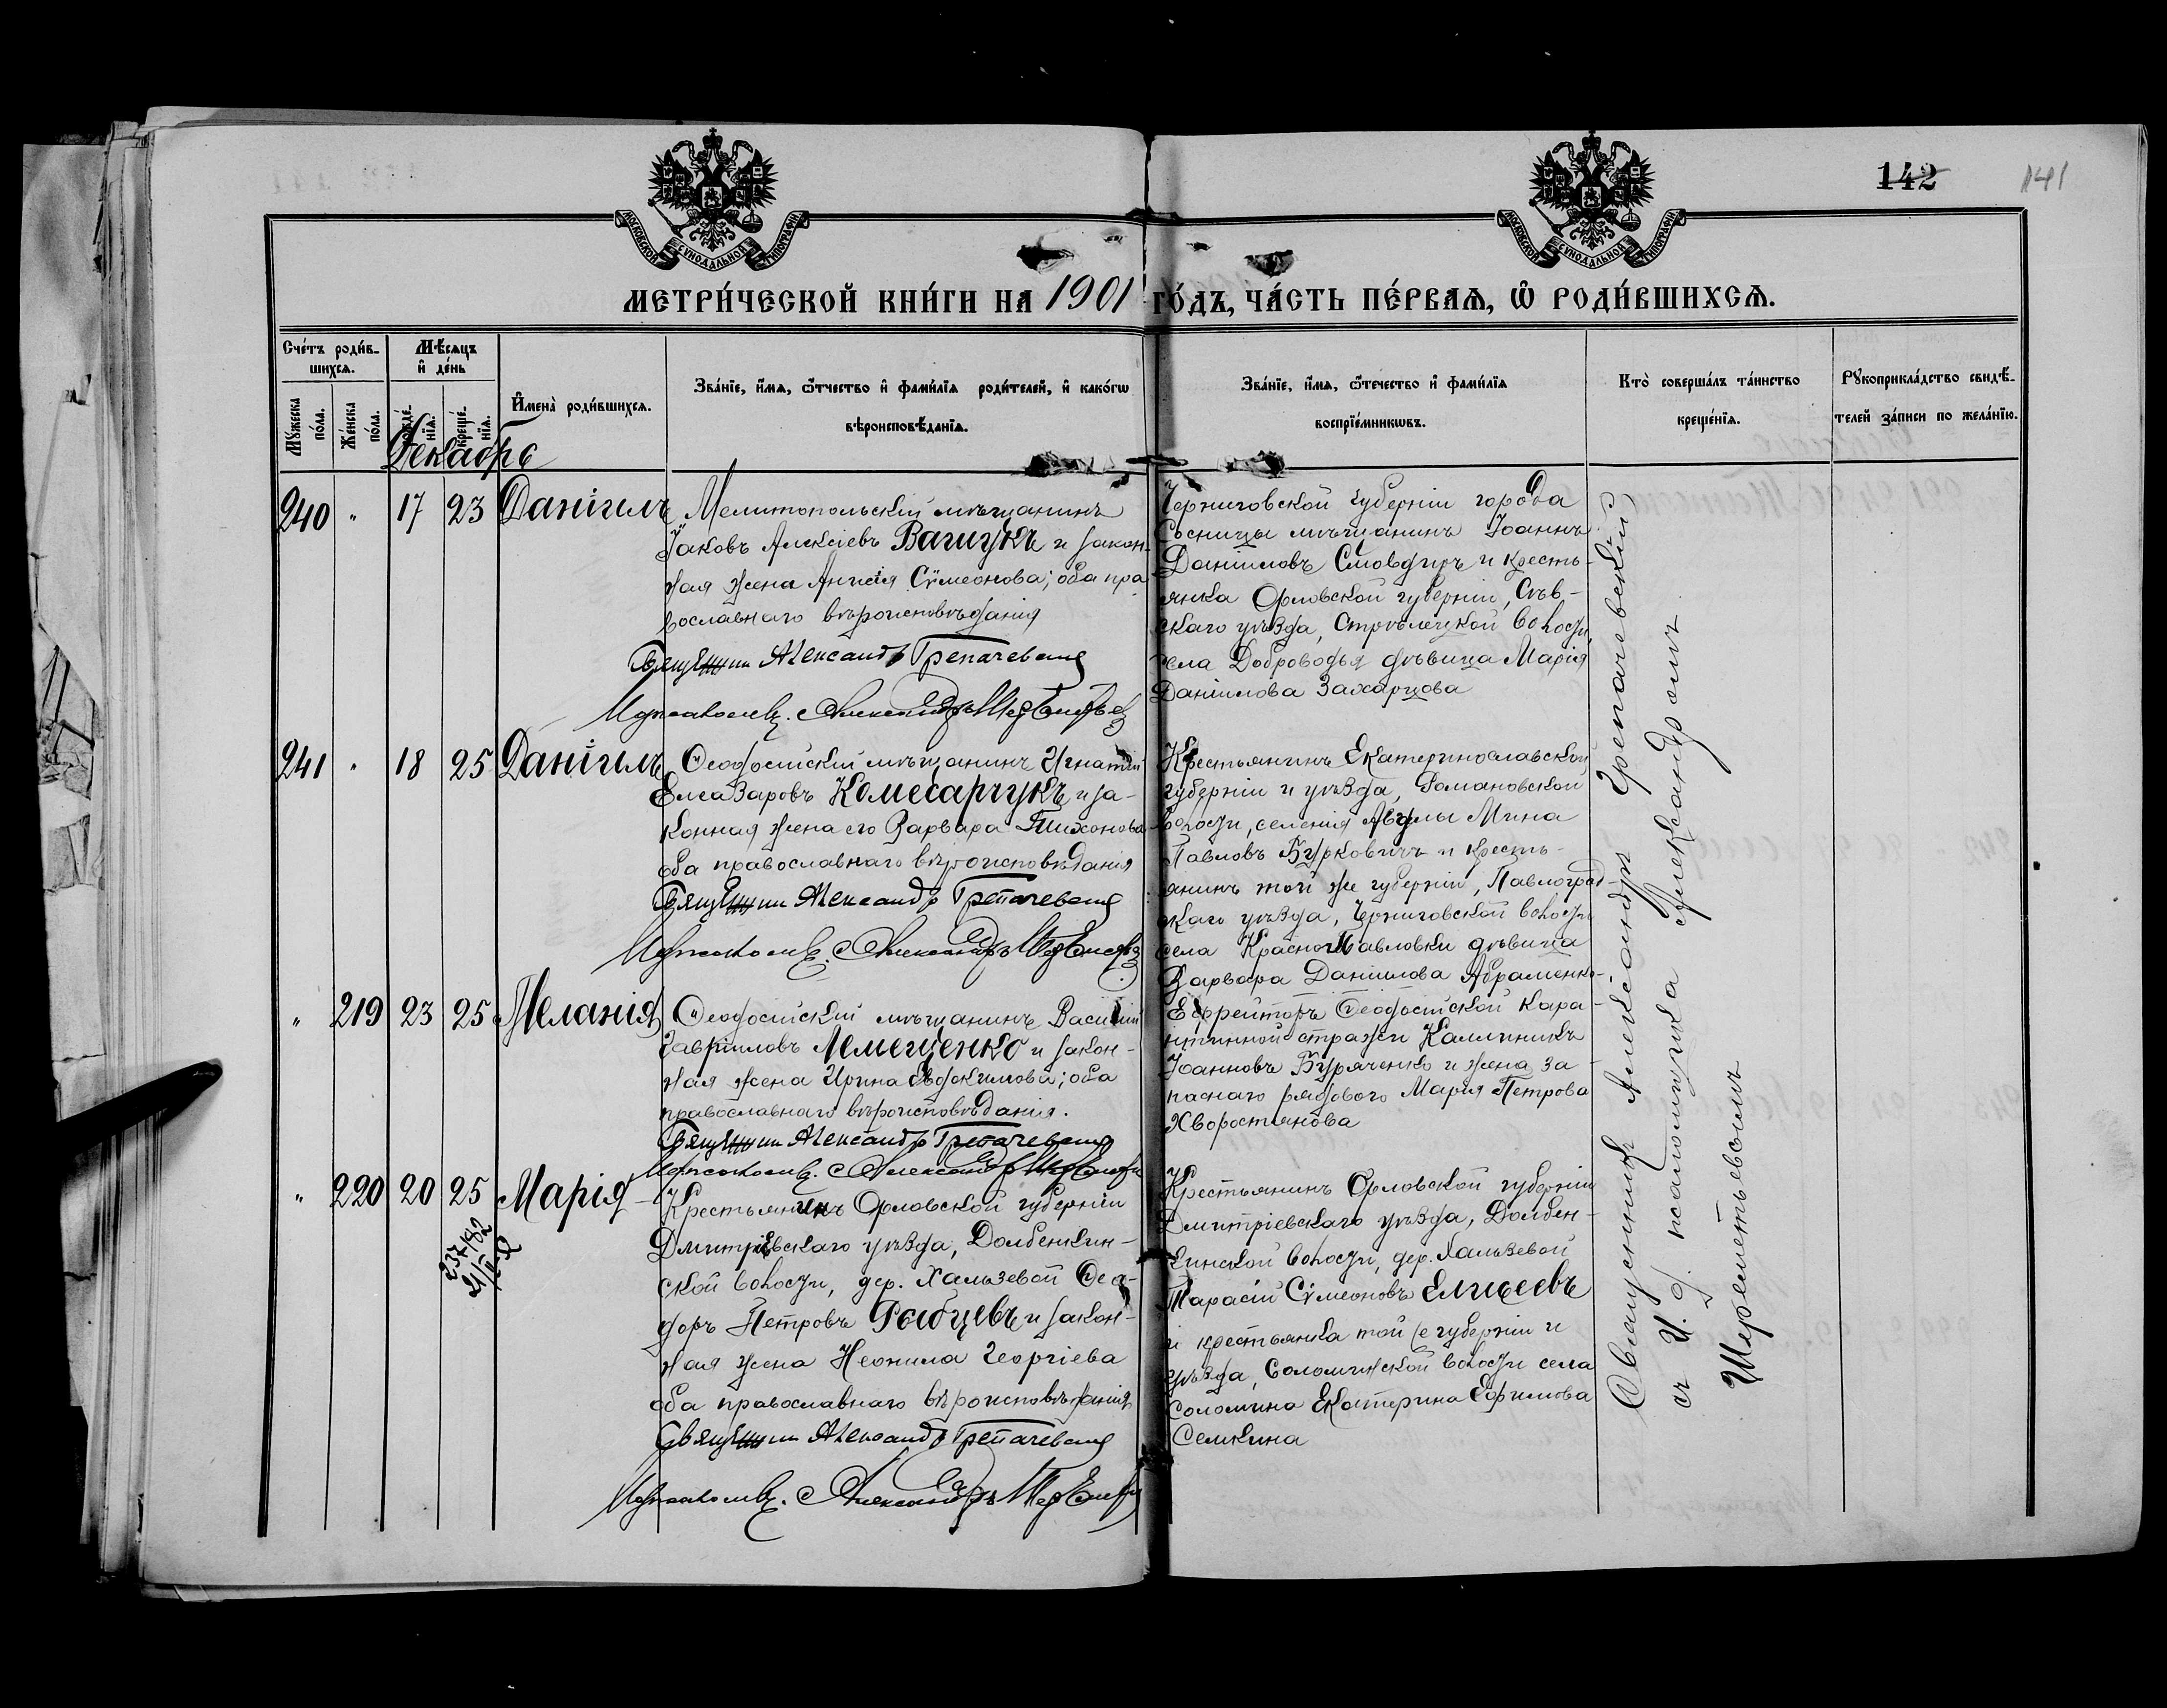 142
141
МОСКОВСКОЙ СУНОДАЛЬНОЙ ТИПОГРАФІИ
МОСКОВСКОЙ СУНОДАЛЬНОЙ ТИПОГРАФІИ
МЕТРИ́ЧЕСКОЙ КНИ́ГИ НА 1901 ГО́ДЪ, ЧА́СТЬ ПЕ́РВАѦ, Ѿ РОДИ́ВШИХСѦ.
Счётъ роди́в-
шихсѧ.
Мѣ́сѧцъ
и де́нь
Мꙋ́жеска по́ла.
Же́нска по́ла.
рожде́-
нїѧ.
креще́-
нїѧ.
Имена̀ роди́вшихсѧ.
Зва́нїе, и́мѧ, ѻ́тчество и фами́лїѧ роди́телей, и како́гѡ
вѣроисповѣ́данїѧ.
Зва́нїе, и́мѧ, ѻ́течество и фами́лїѧ
воспрїе́мникѡвъ.
Кто̀ соверша́лъ та́инство
креще́нїѧ.
Рꙋкоприкла́дство свидѣ́-
телей за́писи по жела́нїю.
Декабрь
240 " 17 23 Даніилъ
Мелитопольскій мѣщанинъ
Іаковъ Алексіевъ Вагнукъ и закон-
ная жена Анисія Сѵмеонова; оба пра
вославнаго вѣроисповѣданія
Священникъ Александръ Грепачевскій
Псаломщ. Александръ Шереметьевъ
Черниговской губерніи города
Сосницы мѣщанинъ Іоаннъ
Даніиловъ и кресть-
янка Орловской губерніи, Сѣв-
скаго уѣзда, Стрѣлецкой волости,
села Доброводья дѣвица Марія
Даніилова Захарцова
241 " 18 25 Даніилъ
Ѳеодосійскій мѣщанинъ Игнатій
Елеазаровъ Комесарчукъ и за-
конная жена его Варвара Тихонова
оба православнаго вѣроисповѣданія
Священникъ Александръ Грепачевскій
Псаломщ. Александръ Шереметьевъ
Крестьянинъ Екатеринославской
губерніи и уѣзда, Романовской
волости, селенія Мина
Павловъ Бурковичъ и кресть-
янинъ той же губерніи, Павлоград
скаго уѣзда, Черниговской волости
села Красно-Павловки дѣвица
Варвара Даніилова Абраменко-
" 219 23 25 Меланія
Ѳеодосійскій мѣщанинъ Василій
Гавріиловъ Лемещенко и закон-
ная жена Ирина Евдокимова; оба
православнаго вѣроисповѣданія.
Священникъ Александръ Грепачевскій
Псаломщ. Александръ Шереметьевъ
Ефрейторъ Ѳеодосійской кара-
нтинной стражи Каллиникъ
Іоанновъ Буряченко и жена за-
паснаго рядового Марія Петрова
Хворостянова
" 220 20 25 Марія
Крестьянинъ Орловской губерніи
Дмитріевскаго уѣзда, Долбенкин-
ской волости, дер. Хальзевой Ѳео-
доръ Петровъ Рябцевъ и закон-
ная жена Неонила Георгіева
оба православнаго вѣроисповѣданія
Священникъ Александръ Грепачевскій
Псаломщ. Александръ Шереметьевъ
Крестьянинъ Орловской губерніи
Дмитріевскаго уѣзда, Долбен-
кинской волости, дер. Хальзевой
Тарасій Сѵмеоновъ Елисеевъ
и крестьянка той же губерніи и
уѣзда, Соломинской волости села
Соломина Екатерина Ефимова
Семкина
Священникъ Александръ Грепачевскій
съ И. д. псаломщика Александромъ
Шереметьевымъ